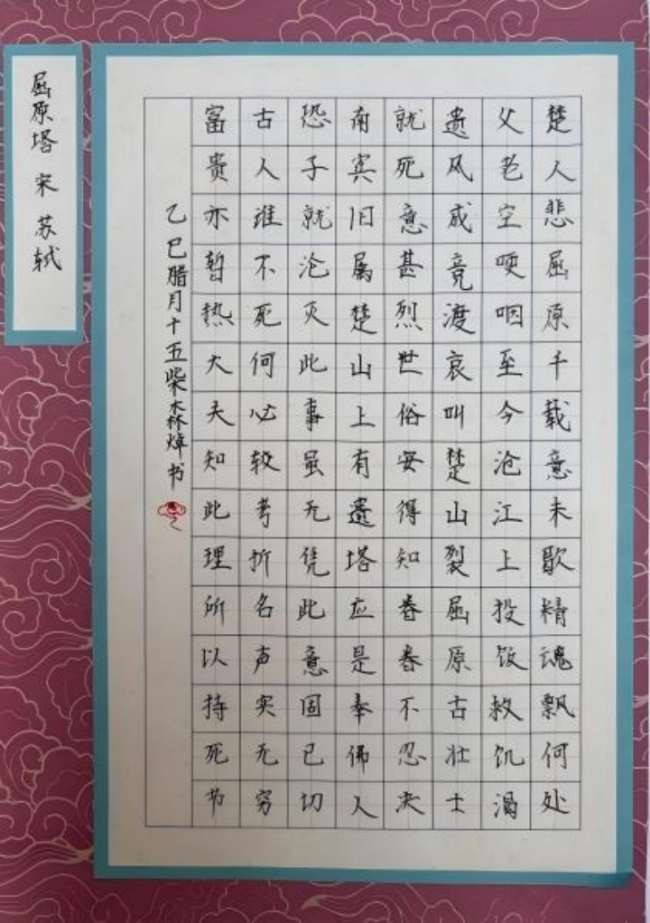 屈原塔 宋 苏轼
楚人悲屈原千载意未歇精魂飘何处
父老空哽咽至今沧江上投饭救饥渴
遗风成竞渡哀叫楚山裂屈原古壮士
就死意甚烈世俗安得知眷眷不忍决
南宾旧属楚山上有遗塔应是奉佛人
恐子就沦灭此事虽无凭此意固已切
古人谁不死何必较考折名声实无穷
富贵亦暂热大夫知此理所以持死节
乙巳腊月十五柴森焯书